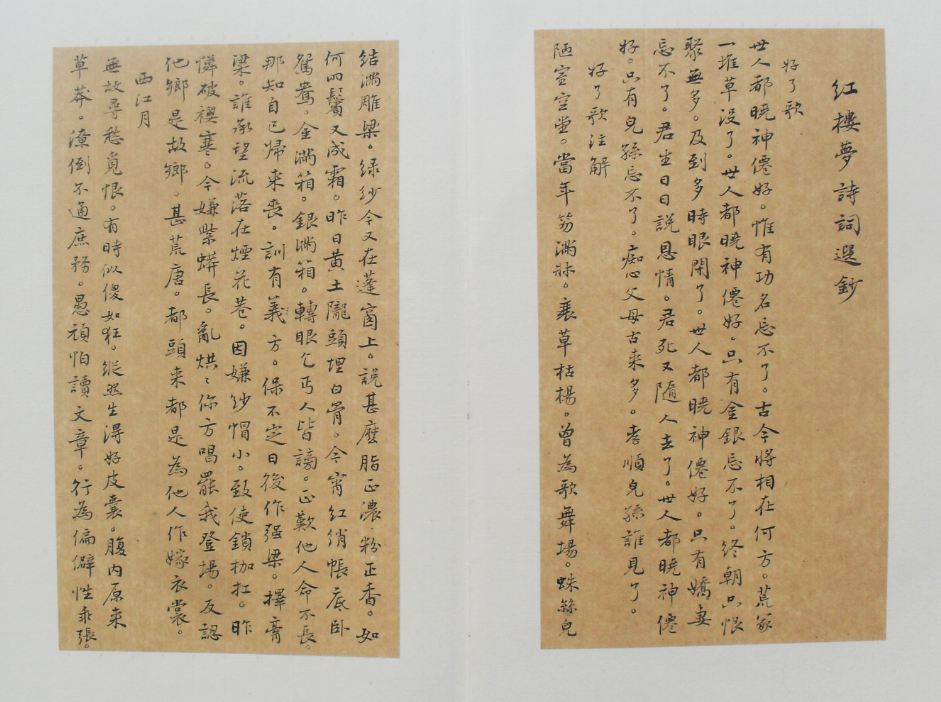 紅樓夢詩詞選鈔
好了歌
世人都曉神僊好。惟有功名忘不了。古今將相在何方。荒冢
一堆草沒了。世人都曉神僊好。只有金銀忘不了。終朝只恨
聚無多。及到多時眼閉了。世人都曉神僊好。只有嬌妻
忘不了。君生日日說恩情。君死又隨人去了。世人都曉神僊
好。只有兒孫忘不了。痴心父母古來多。孝順兒孫誰見了。
好了歌注解
陋室空堂。當年笏滿牀。衰草枯楊。曾為歌舞場。蛛絲兒
結滿雕梁。綠紗今又在蓬窗上。說甚麽脂正濃粉正香。如
何兩鬢又成霜。昨日黃土隴頭埋白骨。今宵紅綃帳底臥
鴛鴦。金滿箱。銀滿箱。轉眼乞丐人皆謗。正歎他人命不長。
那知自己歸來喪。訓有義方。保不定日後作强梁。擇膏
粱。誰承望流落在煙花巷。因嫌紗帽小。致使鎖枷扛。昨
憐破襖寒。今嫌紫蟒長。亂烘〻你方唱罷我登場。反認
他鄉是故鄉。甚荒唐。都頭來都是為他人作嫁衣裳。
西江月
無故尋愁覓恨。有時似傻如狂。縱然生得好皮囊。腹內原來
草莽。潦倒不通庶務。愚頑怕讀文章。行為偏僻性乖張。